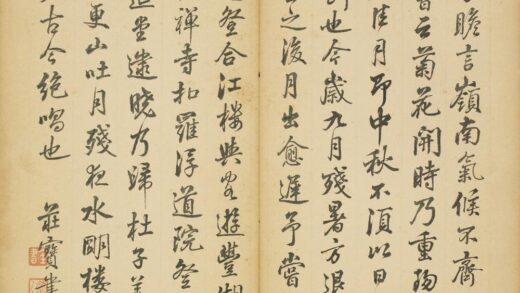 瞻言嶺南氣候不齊
嘗云菊花開時乃重陽
佳月即中秋不須以日
也今歲九月殘暑方退
之後月出愈遲予嘗
登合江樓與客遊豐湖
禪寺扣羅浮道院登
堂逮曉乃歸杜子美
更山吐月殘夜水明樓
古今絕唱也
莊寶書